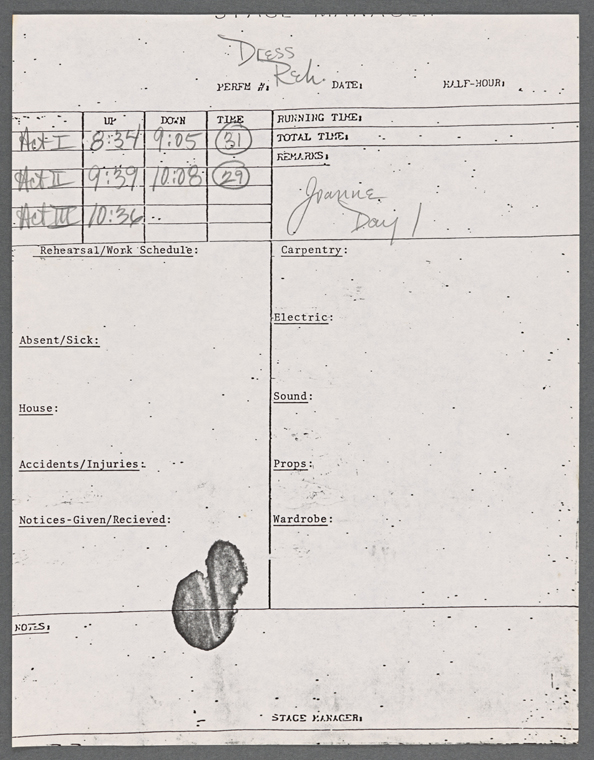 STAGE MANAGER
Dress
Reh.
PERFM #: DATE: HALF-HOUR:
UP DOWN TIME RUNNING TIME:
Act I 8:34 9:05 31 TOTAL TIME:
REMARKS:
Act II 9:39 10:08 29
Joanne
Day 1
Act III 10:36
Rehearsal/Work Schedule: Carpentry:
Electric:
Absent/Sick:
Sound:
House:
Accidents/Injuries: Props:
Notices-Given/Recieved: Wardrobe:
NOTES:
STAGE MANAGER: